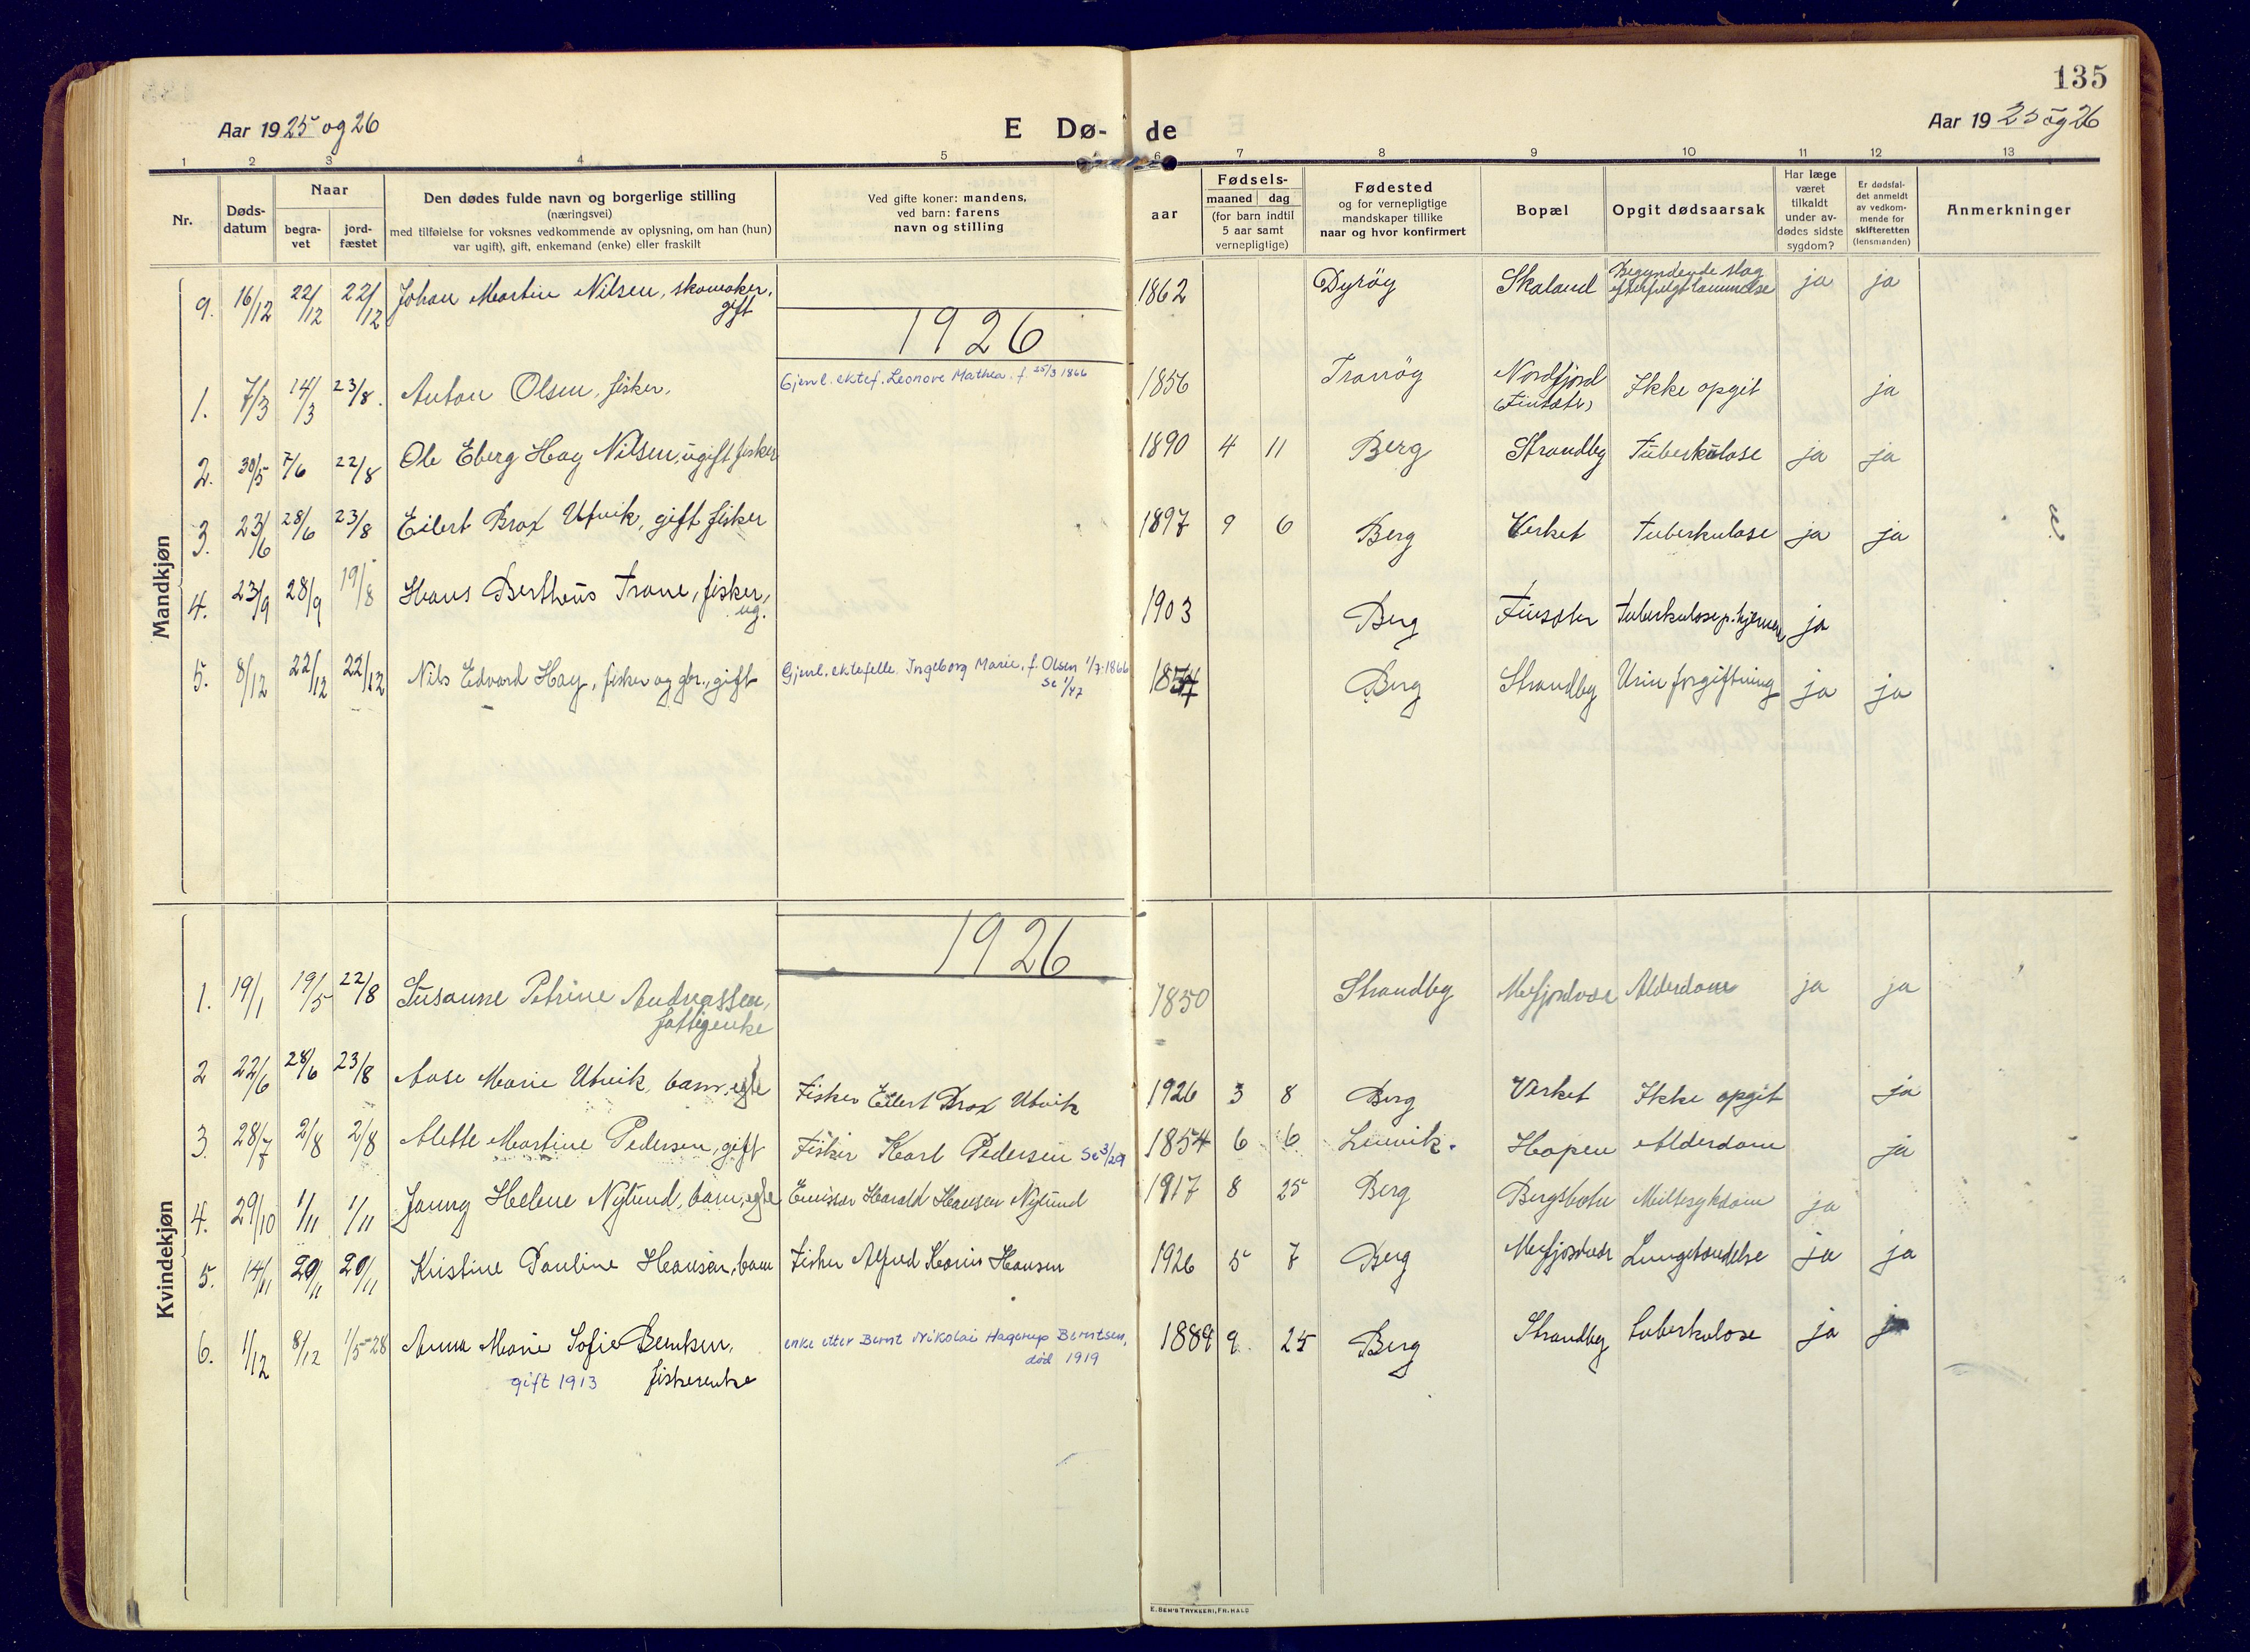 135
Aar 1925 og 26
E Dø- de
Aar 1925 og 26
1 2 3 4 5 6 7 8 9 10 11 12 13
Nr.
Døds-
datum
Naar
begra-
vet
jord-
fæstet
Den dødes fulde navn og borgerlige stilling
(næringsvei)
med tilføielse for voksnes vedkommende av oplysning, om han (hun)
var ugift), gift, enkemand (enke) eller fraskilt
Ved gifte koner: mandens,
ved barn: farens
navn og stilling
aar
Fødsels-
maaned dag
(for barn indtil
5 aar samt
vernepligtige)
Fødested
og for vernepligtige
mandskaper tillike
naar og hvor konfirmert
Bopæl
Opgit dødsaarsak
Har læge
været
tilkaldt
under av-
dødes sidste
sygdom?
Er dødsfal-
det anmeldt
av vedkom-
mende for
skifteretten
(lensmanden)
Anmerkninger
Mandkjøn
9. 16/12 22/12 22/12 Johan Martin Nilsen, skomaker, 1862 Dyröy Skaland Begyndende slag ja ja
gift efterfulgt lammelse
1926
1. 7/3 14/3 23/8. Anton Olsen, fisker. Gjenl. ektef. Leonore Mathea. f. 25/3 1866 1856 Tranöy Nordfjord Ikke opgit ja
(Finsæter)
2. 30/5 7/6 22/8 Ole Eberg Hay Nilsen, ugift fisker 1890 4 11 Berg Strandby Tuberkulose ja ja
3. 23/6 28/6 23/8 Eilert Brox Utvik, gift fisker 1897 9 6 Berg Verket Tuberkulose ja ja
4. 23/9 28/9 19/8 Hans Bertheus Trane, fisker, 1903 Berg Finsæter Tuberkulose p. hjernen ja
ug.
5. 8/12 22/12 22/12 Nils Edvard Hay, fisker og gbr., gift Gjenl. ektefelle Ingeborg Marie, f. Olsen 1/7-1866 Berg Strandby Urin forgiftning ja ja
Se 1/47
Kvindekjøn
1926
1. 19/1 19/5 22/8 Susanne Petrine Andreassen, 1850 Strandby Mefjordvær Alderdom ja ja
fattigenke
2 22/6 28/6 23/8 Aase Marie Utvik, barn, egte Fisker Eilert Brox Utvik 1926 3 8 Berg Verket Ikke opgit ja
3. 28/7 2/8 2/8 Alette Martine Pedersen, gift Fisker Karl Pedersen Se 3/29 1854 6 6 Lenvik. Hopen Alderdom ja
4. 29/10 1/11 1/11 Jenny Helene Nylund, barn, egte Emissær Harald Hansen Nylund 1917 8 25 Berg Bergsbotn Miltesykdom ja
5. 14/11 20/11 20/11 Kristine Pauline Hansen, barn Fisker Alfred Konrin Hansen 1926 5 7 Berg Mefjordvær Lungebetændelse ja ja
6. 1/12 8/12 1/5-28 Anna Marie Sofie Berntsen, enke etter Bernt Nikolai Hagerup Berntsen, 1889 9 25 Berg Strandby Tuberkulose ja ja
gift 1913 fiskerenke død 1919
E. SEM'S TRYKKERI, FR.HALD